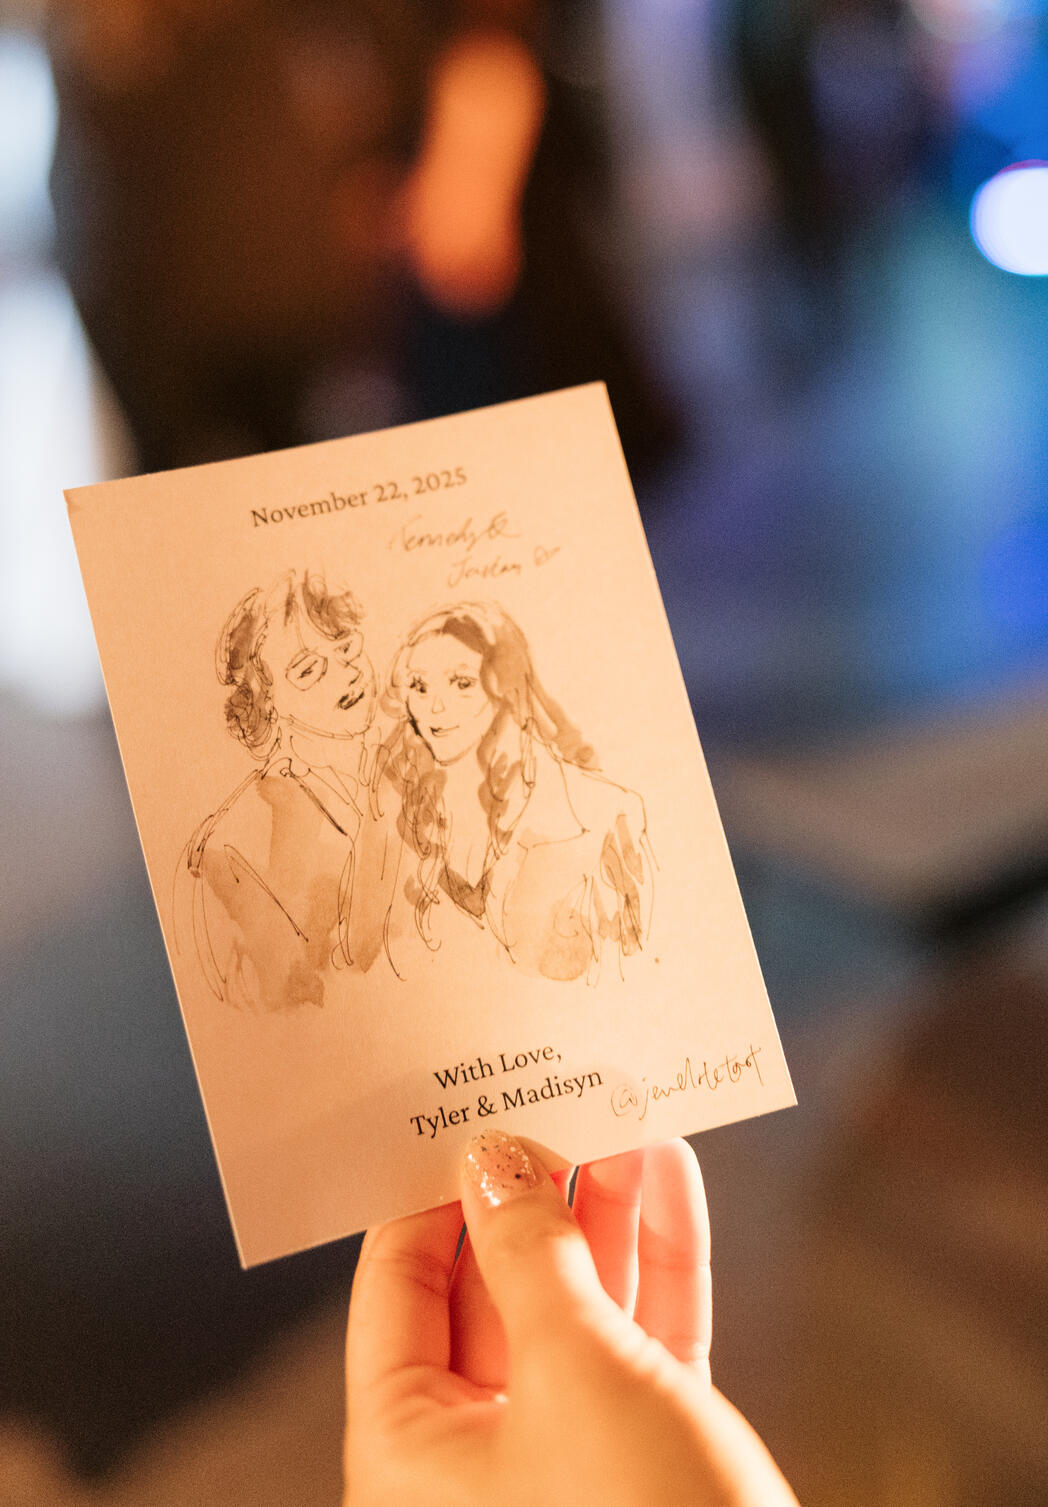 November 22, 2025
Kennedy &
With Love,
Tyler & Madisyn